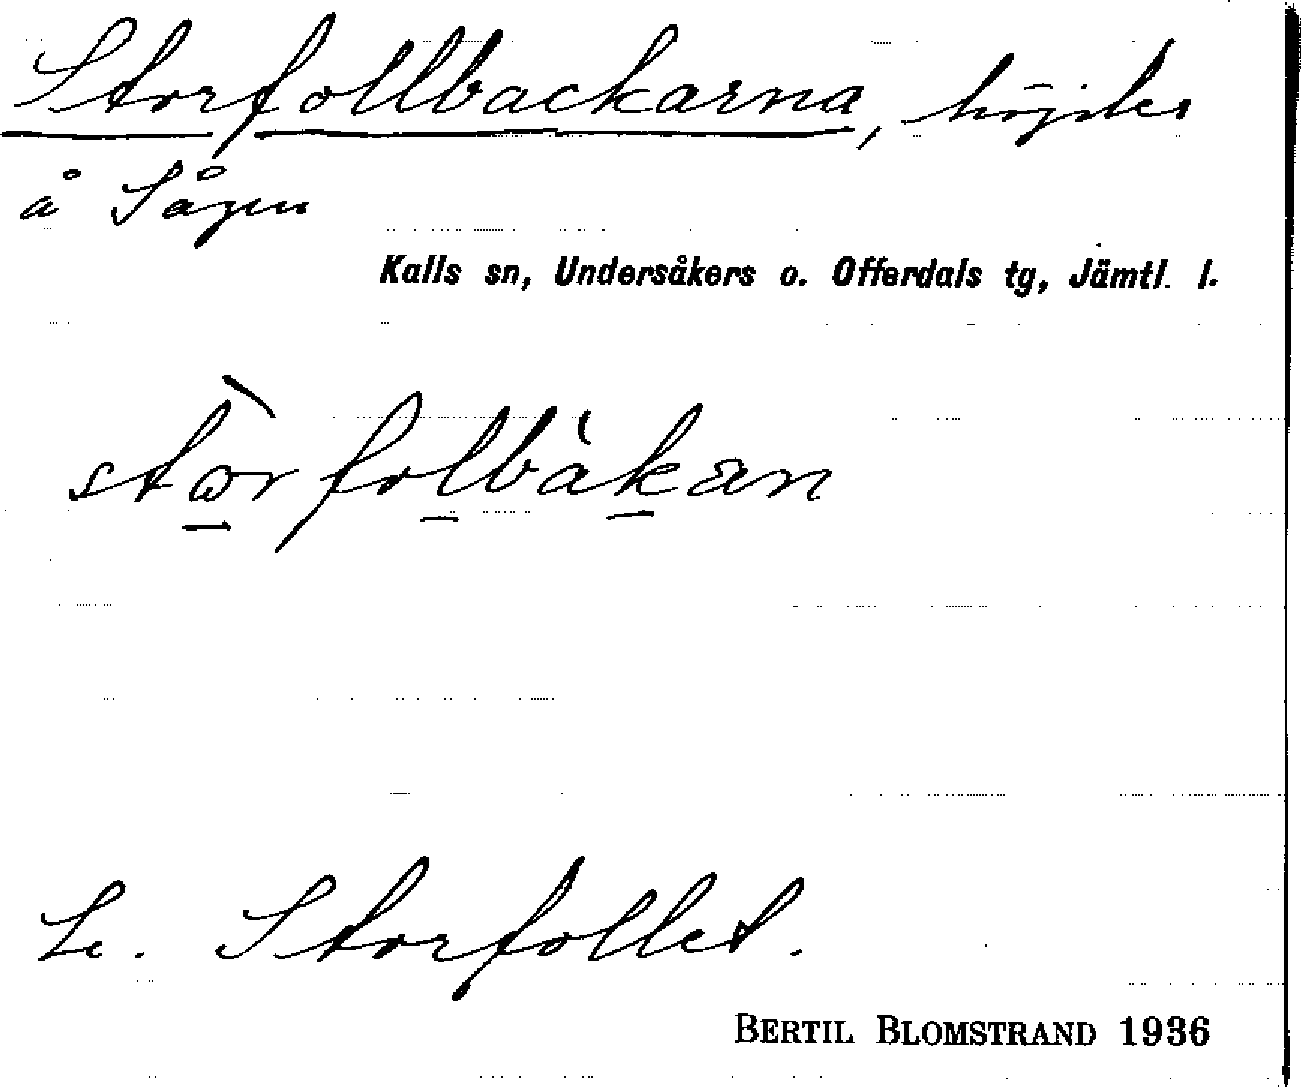 Storfollbackarna, höjder
å Sågen
Kalls sn, Undersåkers o. Offerdals tg, Jämtl. l.
Se. Storfollet.
BERTIL BLOMSTRAND 1936